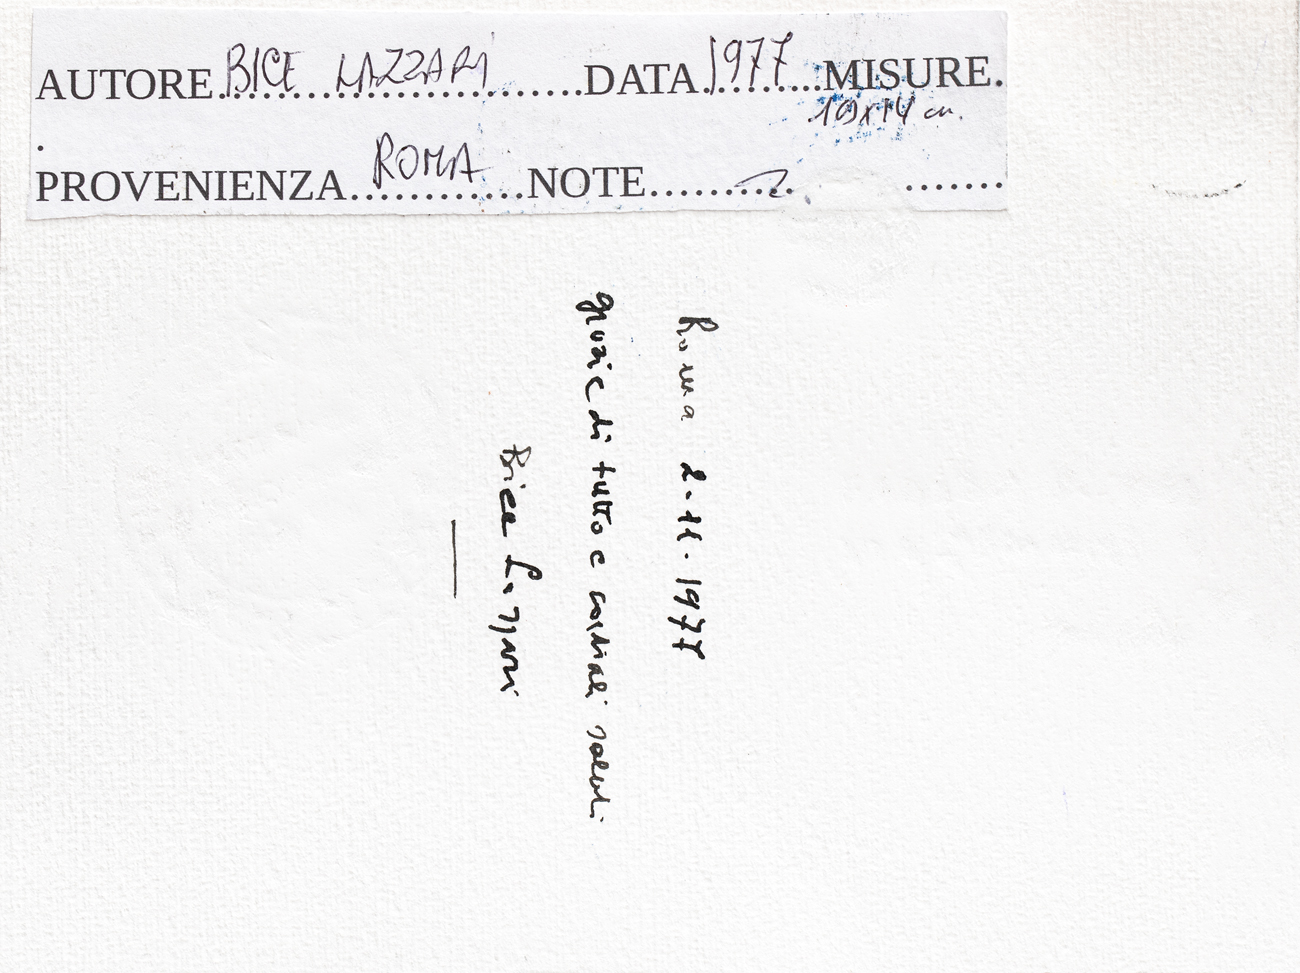 AUTORE BICE LAZZARI DATA 1977 MISURE.
cm.
PROVENIENZA ROMA NOTE
Roma 2.11.1977
grazie di tutto e cordiali saluti
Bice Lazzari